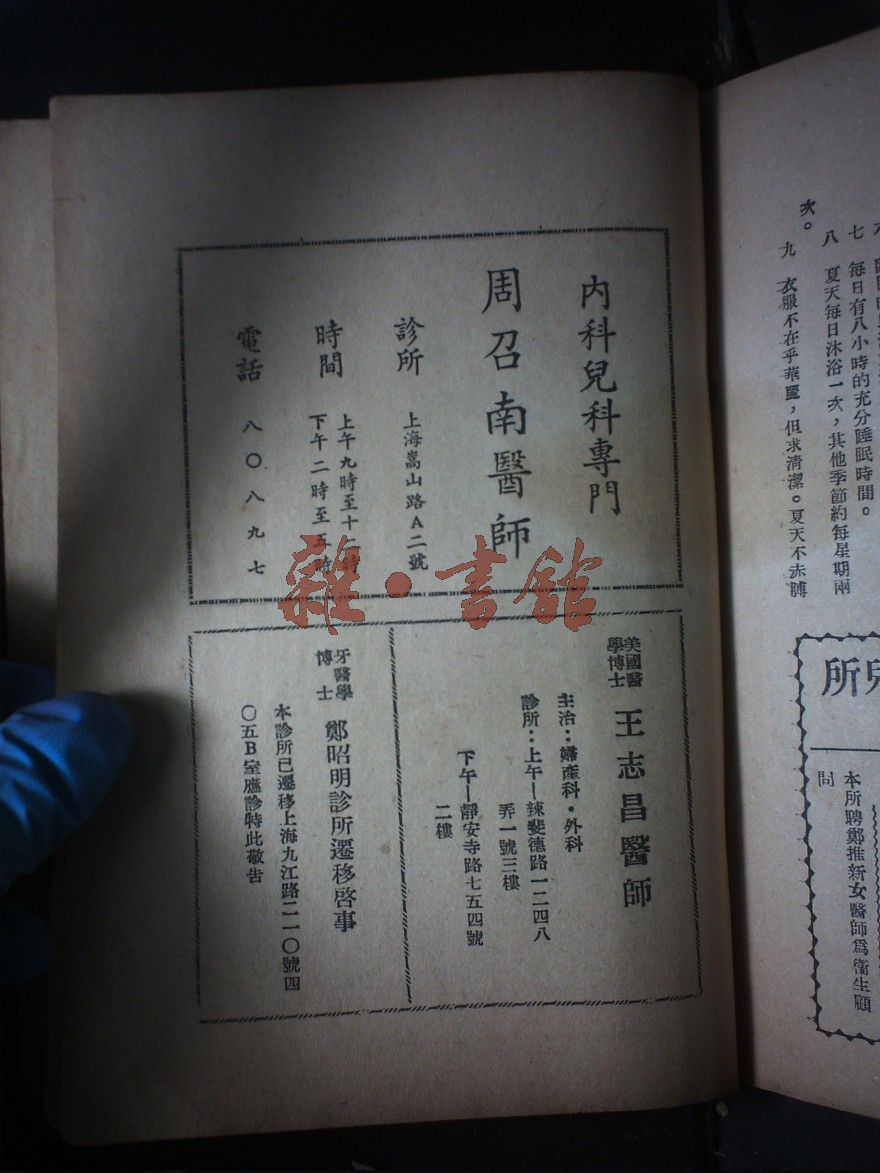 內科兒科專門
周召南醫師
診所 上海嵩山路A二號
時間 上午九時至十二時
下午二時至五時
電話 八〇八九七
美國醫
學博士 王志昌醫師
主治：婦產科・外科
診所：上午—辣斐德路一二四八
弄一號三樓
下午—靜安寺路七五四號
二樓
牙醫學
博士 鄭昭明診所遷移啓事
本診所已遷移上海九江路二一〇號四
〇五B室應診特此敬告
七 每日有八小時的充分睡眠時間。
八 夏天每日沐浴一次，其他季節約每星期兩
次。
九 衣服不在乎華麗，但求清潔。夏天不赤膊
兒所
本所聘鄭推新女醫師爲衞生顧
問
雜・書館